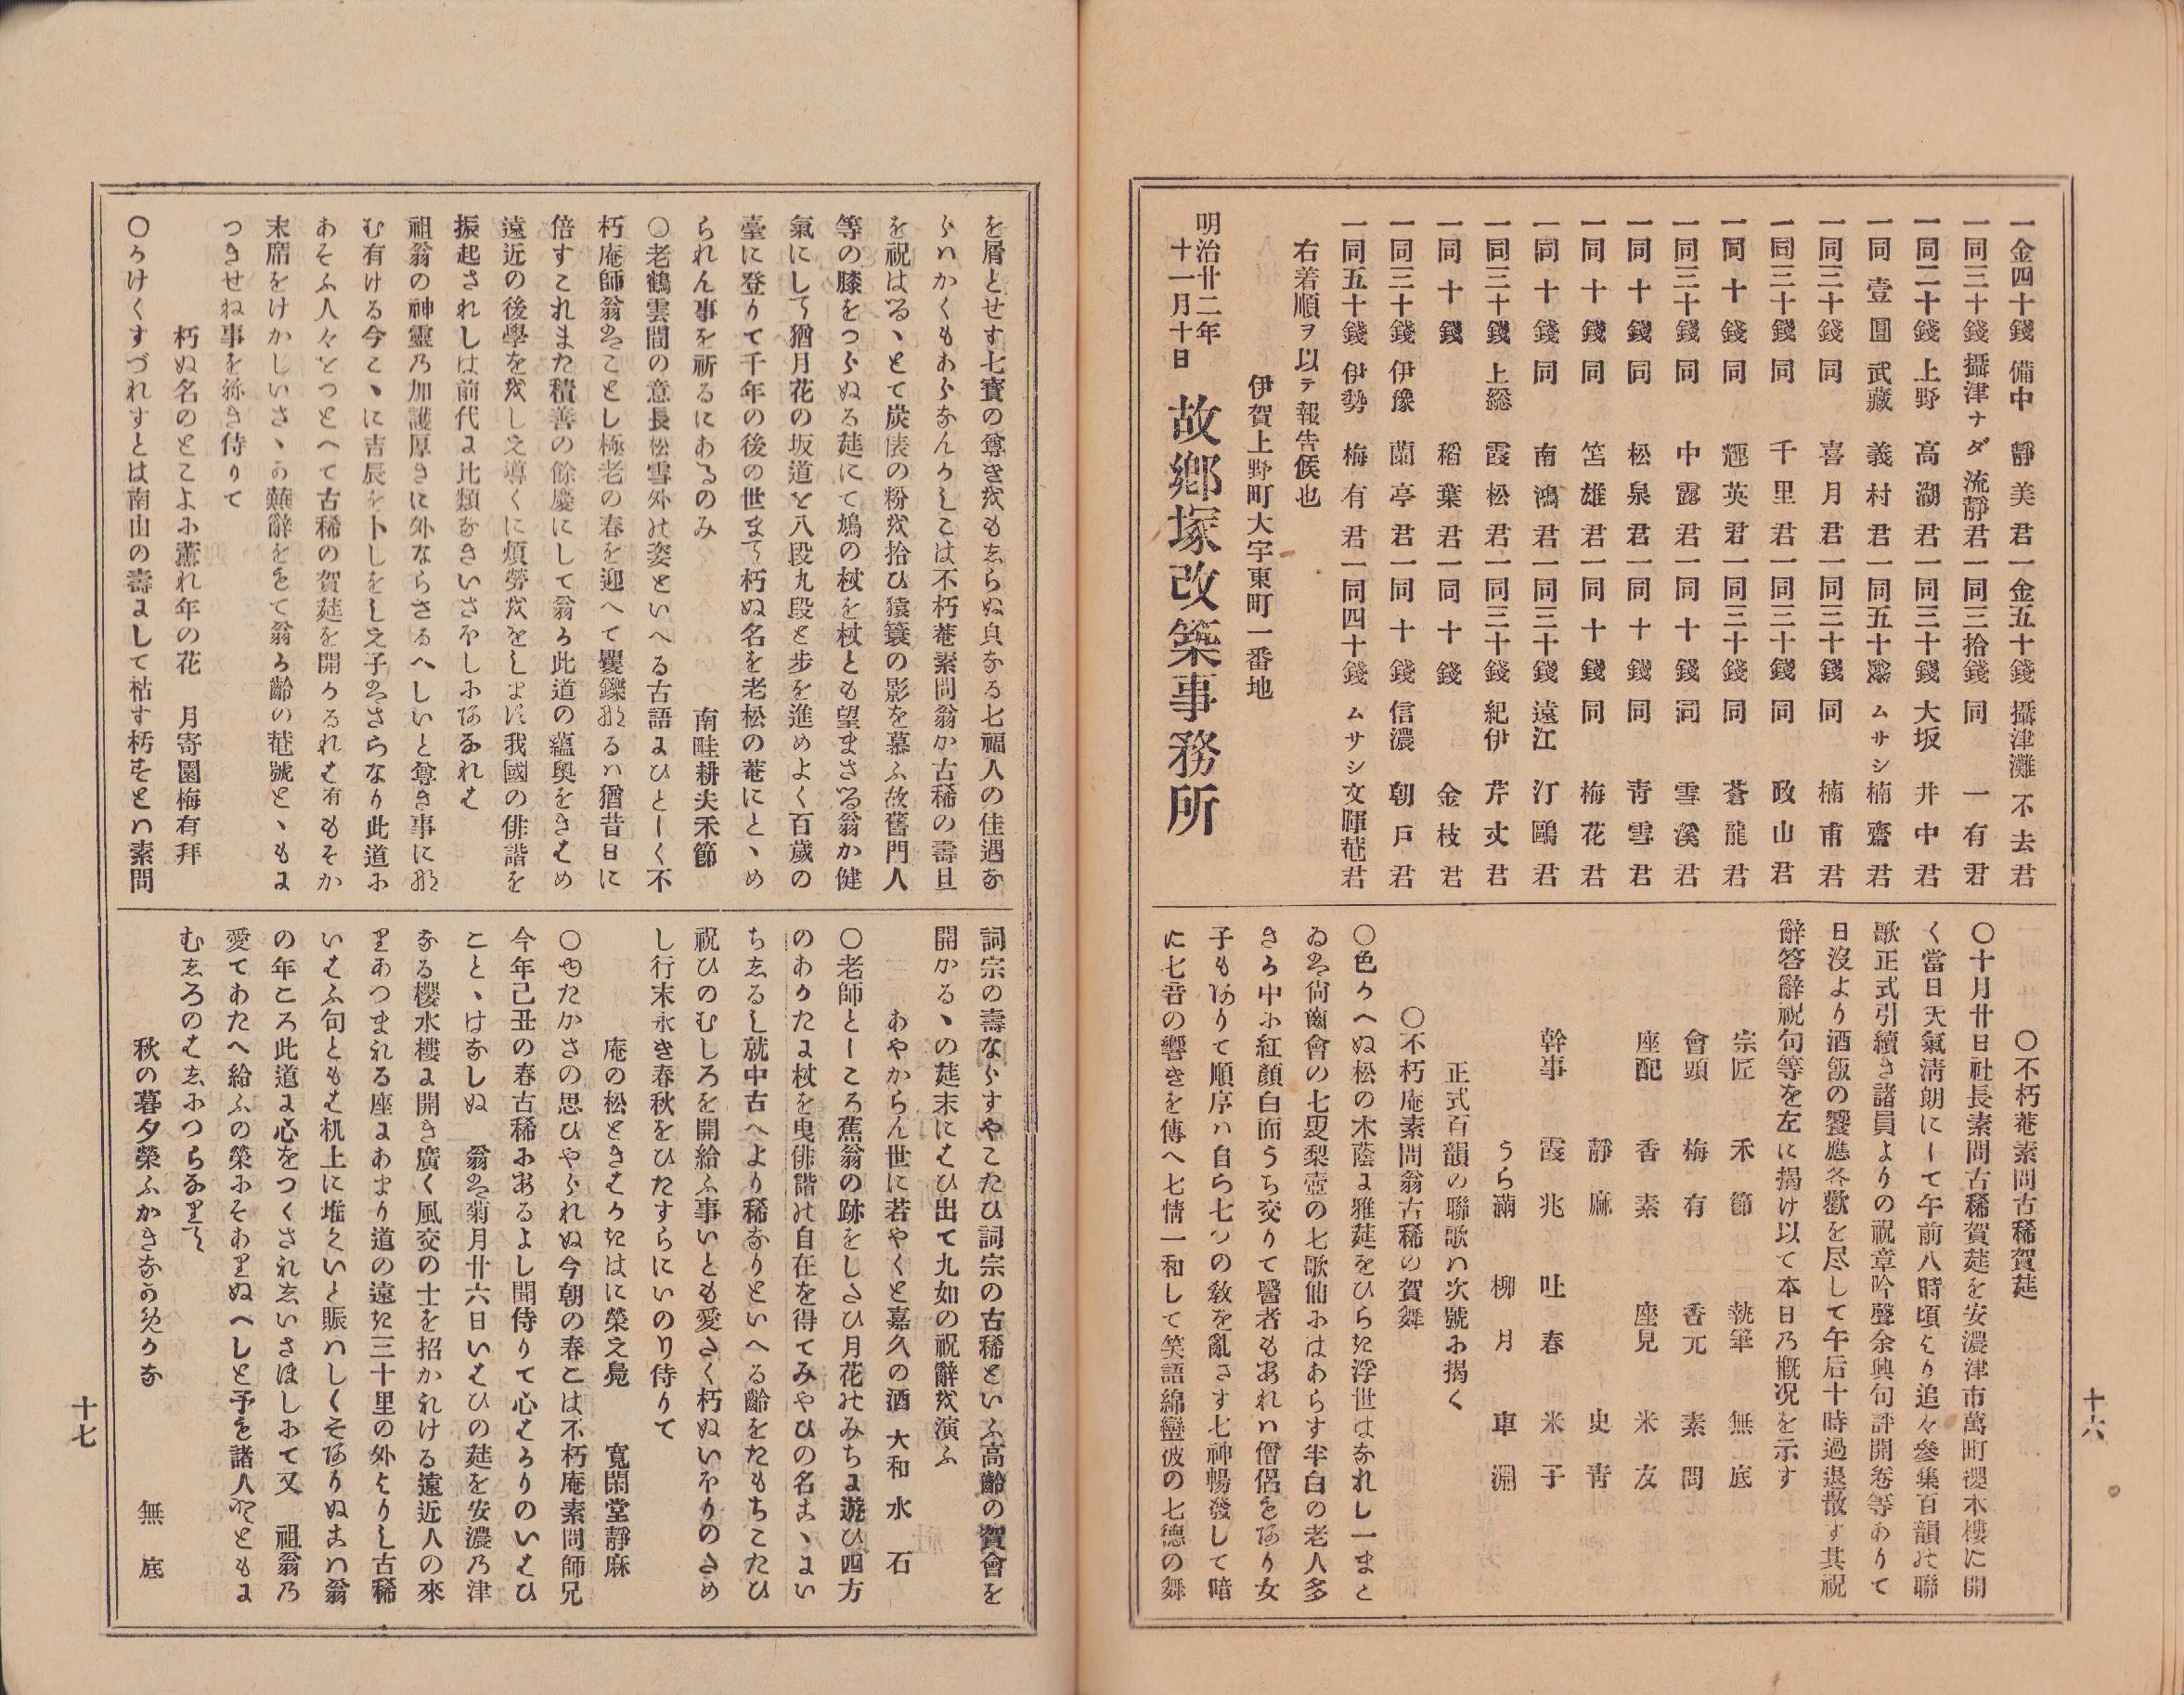 一金四十錢 備中 靜美君
一金五十錢 攝津灘 不去君
一同三十錢 攝津ナダ 流靜君
一同三拾錢 同 一有君
一同二十錢 上野 高湖君
一同三十錢 大坂 井中君
一同壹圓 武藏 義村君
一同五十錢 ムサシ 楠齋君
一同三十錢 同 喜月君
一同十錢 同 楠甫君
一同三十錢 同 千里君
一同三十錢 同 政山君
一同十錢 同 輝英君
一同三十錢 同 蒼龍君
一同三十錢 同 中露君
一同十錢 同 雪溪君
一同十錢 同 松泉君
一同十錢 同 靑雪君
一同十錢 同 笘雄君
一同十錢 同 梅花君
一同十錢 同 南鴻君
一同三十錢 遠江 汀鷗君
一同三十錢 上総 霞松君
一同三十錢 紀伊 芹丈君
一同十錢 稻葉君
一同十錢 金枝君
一同三十錢 伊豫 蘭亭君
一同十錢 信濃 朝戸君
一同五十錢 伊勢 梅有君
一同四十錢 ムサシ 文暉菴君
右着順ヲ以テ報告候也
伊賀上野町大字東町一番地
明治廿二年
十一月十日
故郷塚改築事務所
〇不朽菴素問古稀賀莚
〇十月廿日社長素問古稀賀莚を安濃津市萬町櫻木樓に開
く當日天氣淸朗にして午前八時頃より追々參集百韻の聯
歌正式引續き諸員よりの祝章吟聲余興句評開卷等ありて
日沒より酒飯の饗應各歡を尽して午后十時過退散す其祝
辭答辭祝句等を左に揭け以て本日乃槪况を示す
宗匠 禾節 執筆 無底
會頭 梅有 香元 素問
座配 香素 座見 米友
靜麻 史靑
幹事 霞兆 吐春 米子
うら滿 柳月 車淵
正式百韻の聯歌ハ次號に揭く
〇不朽庵素問翁古稀の賀舞
〇色かへぬ松の木蔭に雅莚をひらき浮世はなれし一まと
ゐは尙齒會の七叟梨壺の七歌仙にはあらす半白の老人多
きか中に紅顏白面うち交りて醫者もあれハ僧侶もあり女
子もありて順序ハ自ら七つの敎を亂さす七神暢發して暗
に七音の響きを傳へ七情一和して笑語綿蠻彼の七德の舞
十六
を屑とせす七寶の尊きをもしらぬ皃なる七福人の佳遇な
らハかくもあらなんかしこは不朽菴素問翁か古稀の壽旦
を祝はるゝとて炭俵の粉を拾ひ猿簑の影を慕ふ故舊門人
等の膝をつらぬる莚にて鳩の杖を杖とも望まさる翁か健
氣にして猶月花の坂道を八段九段と歩を進めよく百歲の
臺に登りて千年の後の世まて朽ぬ名を老松の菴にとゝめ
られん事を祈るにあるのみ
南畦耕夫禾節
〇老鶴雲間の意長松雪外の姿といへる古語にひとしく不
朽庵師翁はことし極老の春を迎へて矍鑠たるハ猶昔日に
倍すこれまた積善の餘慶にして翁か此道の蘊奥をきはめ
遠近の後學ををしえ導くに煩勞ををしまに我國の俳諧を
振起されしは前代に比類なきいさをしにあなれは
祖翁の神靈乃加護厚きに外ならさるへしいと尊き事にな
む有ける今こゝに吉辰をトしをしえ子はさらなり此道に
あそふ人々をつとへて古稀の賀莚を開かるれは有もそか
末席をけかしいさゝか蕪辭をもて翁か齡の菴號とゝもに
つきせぬ事をねき侍りて
朽ぬ名のとこよに薫れ年の花 月寄園梅有拜
〇かけくすづれすとは南山の壽にして枯す朽すとハ素問
詞宗の壽ならすやことひ詞宗の古稀といふ高齡の賀會を
開かるゝの莚末にはひ出て九如の祝辭を演ふ
あやからん世に若やくと嘉久の酒 大和 水石
〇老師としころ蕉翁の跡をしたひ月花のみちに遊ひ四方
のあかたに杖を曳俳諧の自在を得てみやひの名はゝにい
ちしるし就中古へより稀なりといへる齡をたもちことひ
祝ひのむしろを開給ふ事いとも愛たく朽ぬいやりのさめ
し行末永き春秋をひたすらにいのり侍りて
庵の松ときはかきはに榮え鳧 寬閑堂靜麻
〇ゆたかさの思ひやられぬ今朝の春とは不朽庵素問師兄
今年己丑の春古稀にあるよし聞侍りて心はかりのいはひ
ことゝはなしぬ 翁は菊月廿六日いはひの莚を安濃乃津
なる櫻水樓に開き廣く風交の士を招かれける遠近人の來
りあつまれる座にあまり道の遠き三十里の外よりし古稀
いはふ句ともは机上に堆くいと賑ハしくそありぬまハ翁
の年ころ此道に心をつくされしいさほしにて又 祖翁乃
愛てあたへ給ふの榮にそありぬへしと予も諸人とともに
むしろのはしにつらなりて
秋の暮夕榮ふかきなかめかな 無底
十七